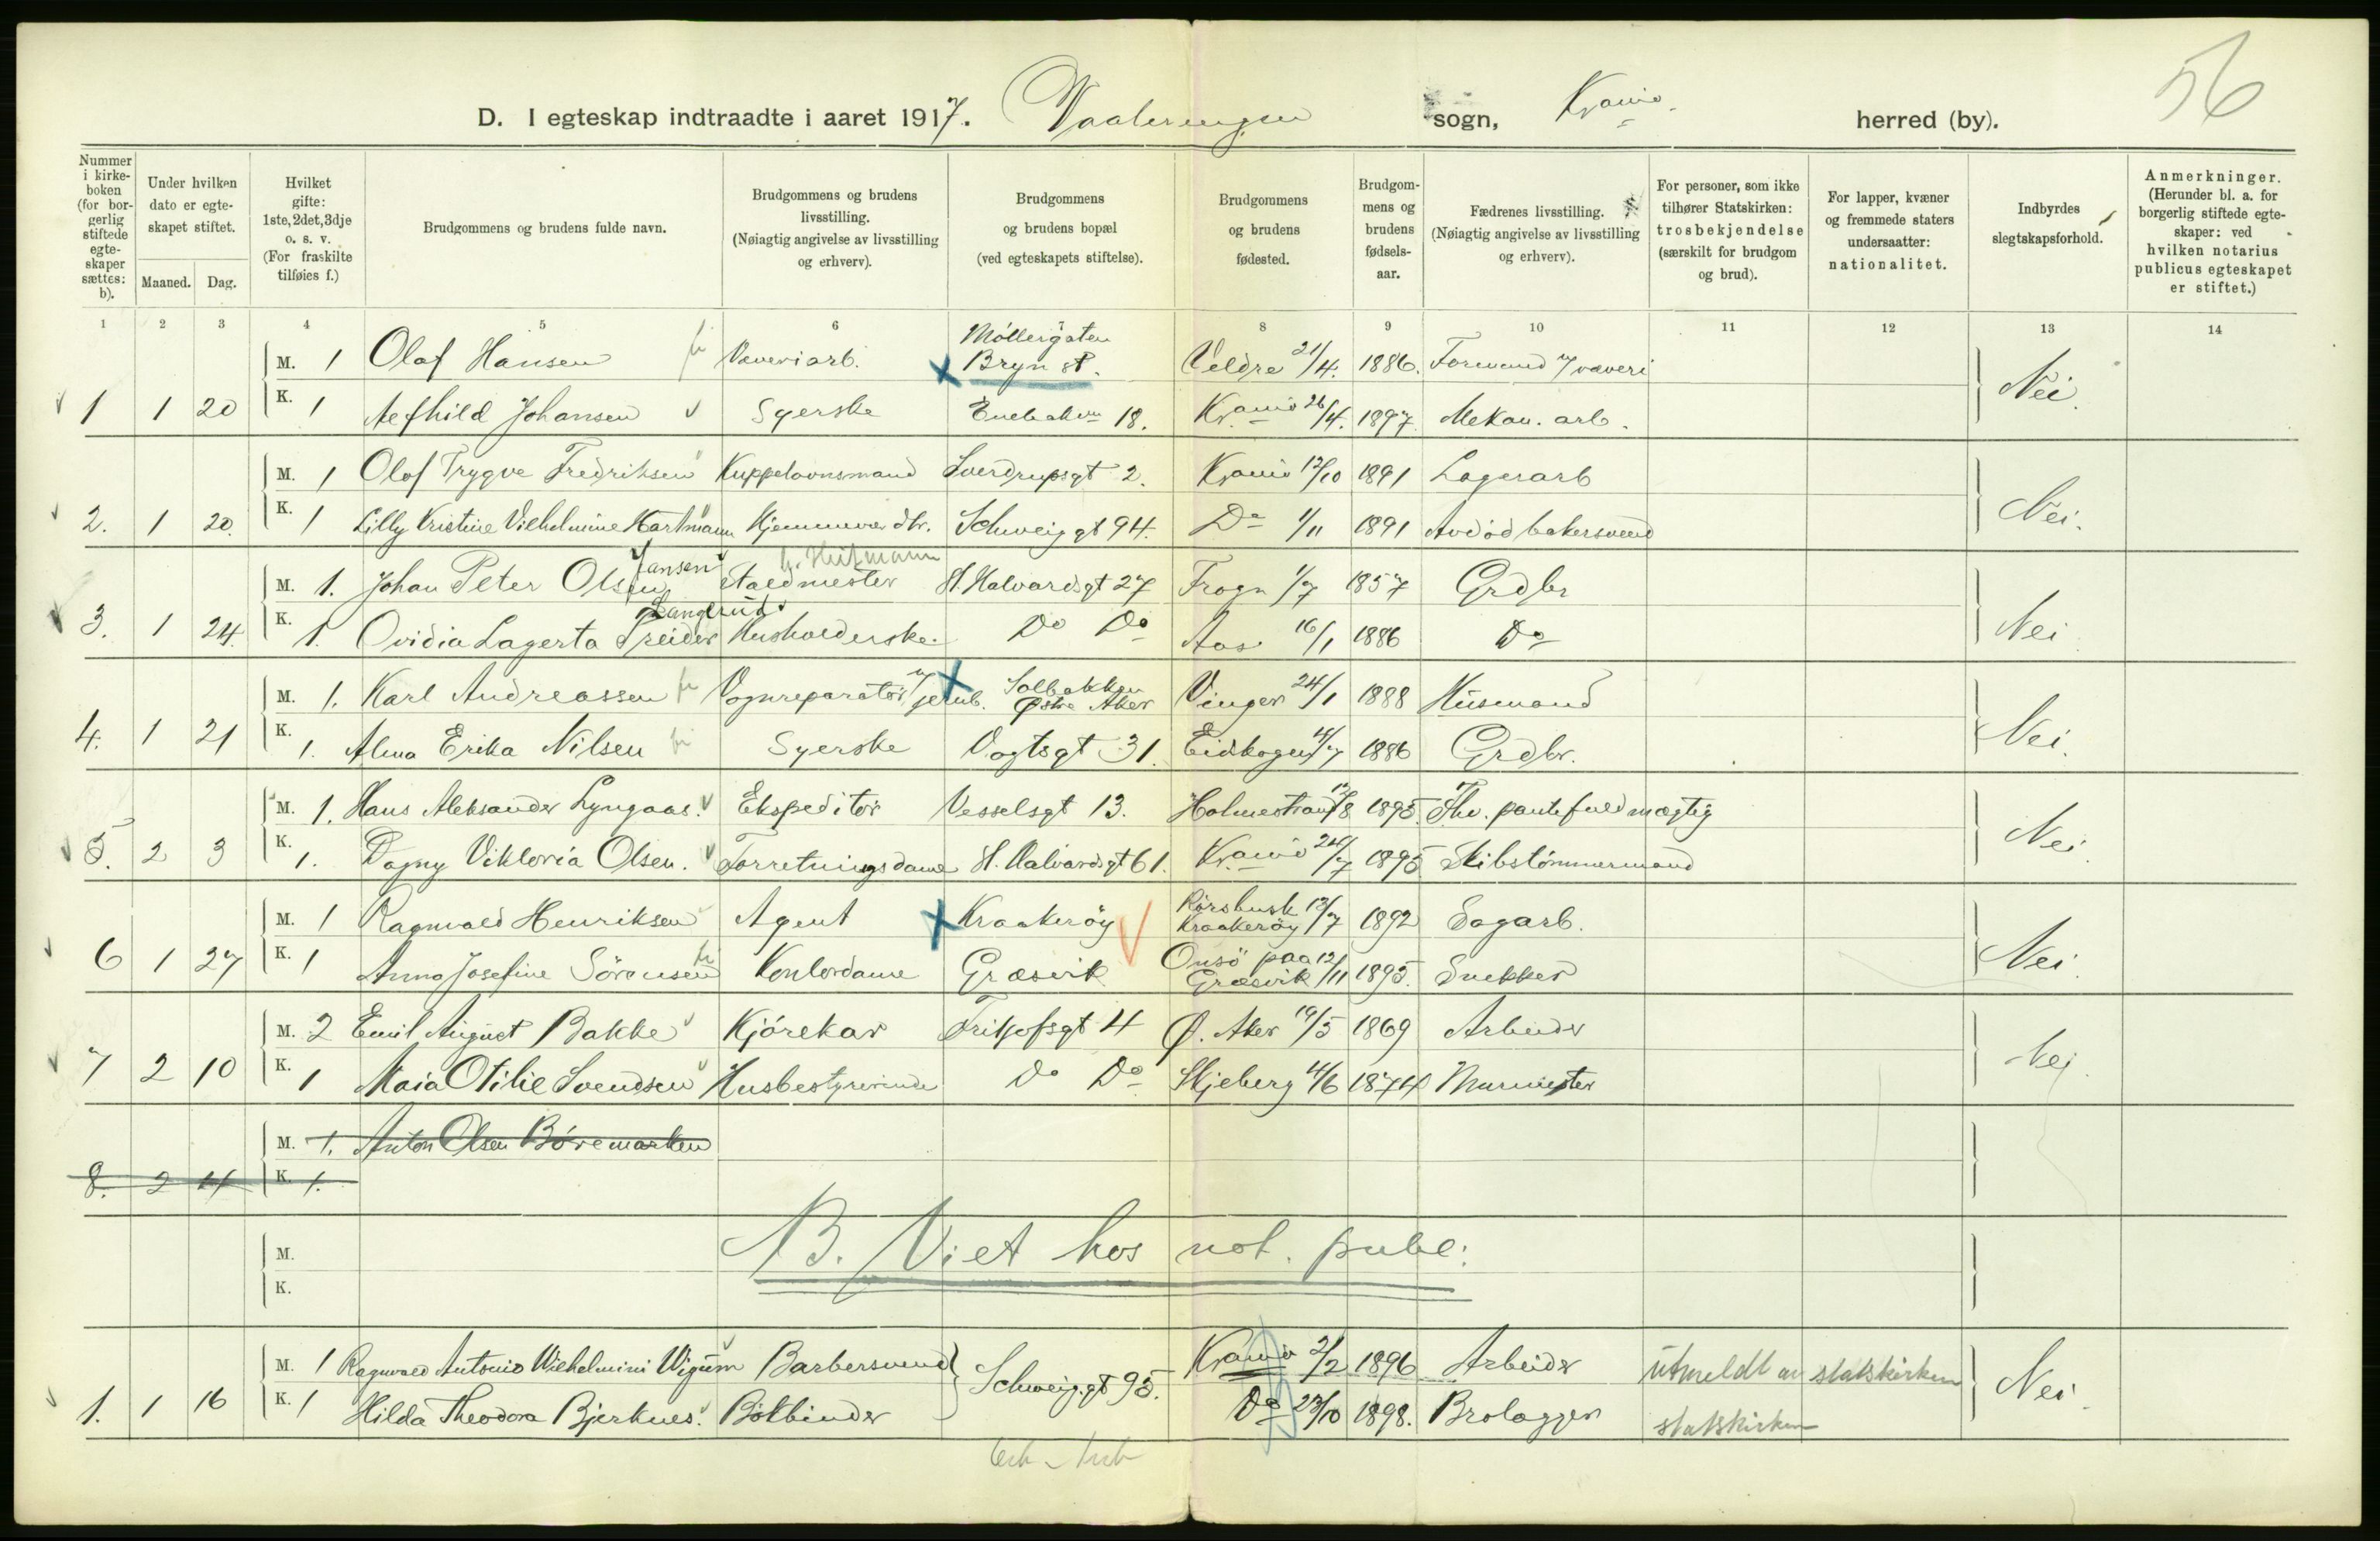 56
D. I egteskap indtraadte i aaret 1917. Vaalerengen sogn, Kr.ania herred (by).
Nummer i kirkeboken (for borgerlig stiftede egteskaper sættes: b).
Under hvilken dato er egteskapet stiftet.
Maaned. Dag.
Hvilket gifte: 1ste, 2det, 3dje o. s. v. (For fraskilte tilføies f.)
Brudgommens og brudens fulde navn.
Brudgommens og brudens livsstilling. (Nøiagtig angivelse av livsstilling og erhverv).
Brudgommens og brudens bopæl (ved egteskapets stiftelse).
Brudgommens og brudens fødested.
Brudgommens og brudens fødselsaar.
Fædrenes livsstilling. (Nøiagtig angivelse av livsstilling og erhverv).
For personer, som ikke tilhører Statskirken: trosbekjendelse (særskilt for brudgom og brud).
For lapper, kvæner og fremmede staters undersaatter: nationalitet.
Indbyrdes slegtskapsforhold.
Anmerkninger. (Herunder bl. a. for borgerlig stiftede egteskaper: ved hvilken notarius publicus egteskapet er stiftet.)
1 2 3 4 5 6 7 8 9 10 11 12 13 14
M. 1 Olaf Hansen Væveriarb. Møllergaten Bryn st. Veldre 21/4. 1886. Formand i væveri
1 1 20 K. 1 Aefhild Johansen Syerske Enebakvn 18. Kr.ania 26/4. 1897 Mekan. arb. Nei.
M. 1 Olaf Trygve Fredriksen Kuppelovnsmand Sverdrupsgt 2. Kr.ania 12/10 1891 Lagerarb
2. 1 20. K. 1 Lilly Kristine Vilhelmine Hartmann Hjemmevær. dtr. Schweiggt 94. Do 1/11 1891 Avdød bakersvend Nei.
M. 1. Johan Peter Olsen Jansen Staldmester St. Halvardsgt 27 Frogn 1/7 1857 Grdbr
3. 1 24. K. 1. Ovidia Lagerta Treider Langerud Husholderske Do Do Aas 16/1 1886 Do Nei
M. 1. Karl Andreassen Vognreparatør v/ jernb. Solbakken Østre Aker Vinger 24/1 1888 Husmand
4. 1 21 K. 1. Alma Erika Nilsen Syerske Vogtsgt 31. Eidskogen 4/7 1886 Grdbr. Nei.
M. 1. Hans Aleksander Lyngaas. Ekspeditør Vesselsgt 13. Holmestrand 12/8 1895. Fhv. pantefuldmægtig
5. 2 3 K. 1. Dagny Viktoria Olsen. Forretningsdame St. Halvardsgt 61. Kr.ania 24/7 1895 Skibstømmermand Nei.
M. 1 Ragnvald Henriksen Agent Kraakerøy Rørsbusk Kraakerøy 12/7 1892 Sagarb.
6 1 27 K. 1 Anna Josefine Sörensen Kontordame Græsvik Onsö paa Græsvik 12/11 1895. Snekker Nei.
M. 2 Emil August Bakke Kjørekar Fritjofsgt 4 Ø. Aker 19/5 1869 Arbeider
7 2 10 K. 1 Maia Otilie Svendsen Husbestyrerinde Do Do Skjeberg 4/6 1874 Murmester Nei.
M. 1. Anton Olsen Böremarken
8. 2 4 K. 1.
M.
K.
B. Viet hos not. publ:
M. 1 Ragnvald Antonio Wilhelmini Vigum Barbersvend Schweiggt 95. Kr.ania 2/2 1896 Arbeider utmeldt av statskirken
1. 1 16 K. 1 Hilda Theodora Bjerknes. Bokbinder Do 23/10 1898. Brolægger statskirken Nei.